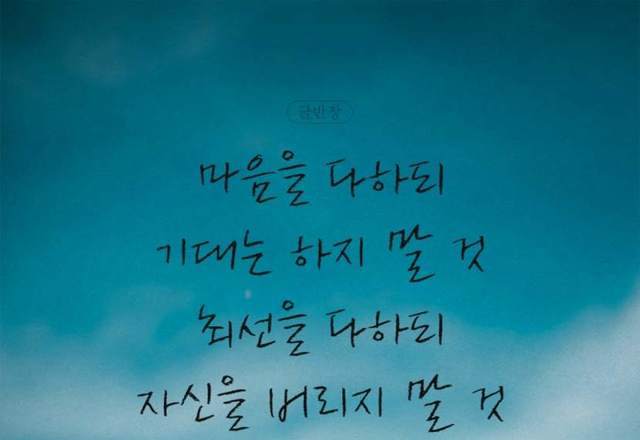 글반장
마음을 다하되
기대는 하지 말 것
최선을 다하되
자신을 버리지 말 것